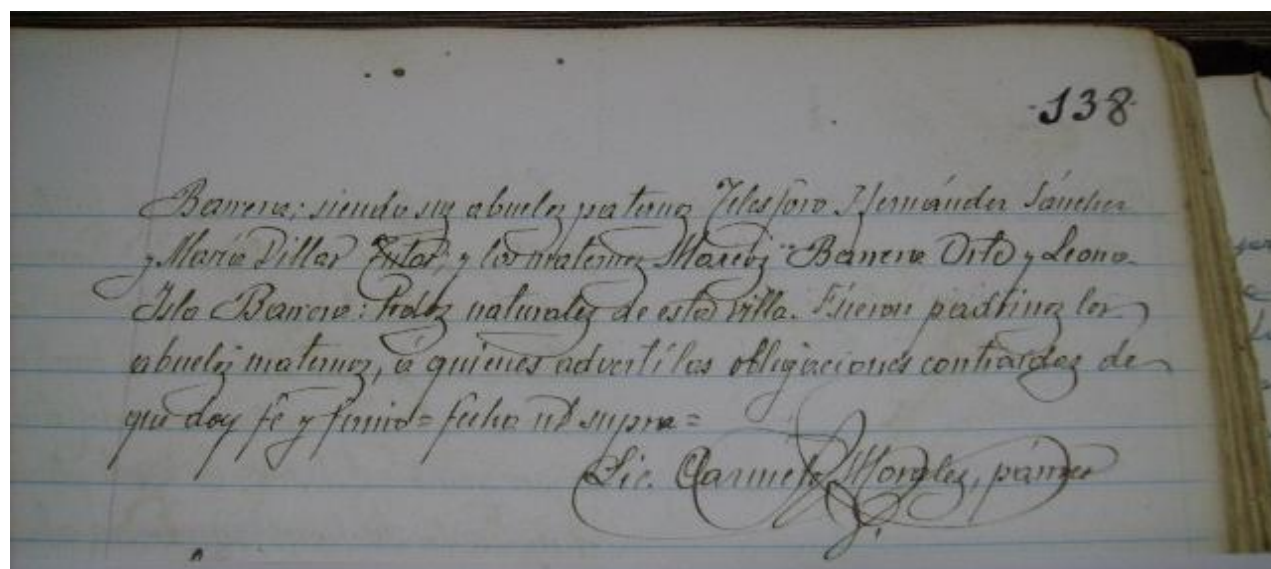 138
Barrera; siendo sus abuelos paternos Telesforo Hernández Sánchez
y María Villar, y los maternos Marcos Barrera Orte y Leona
Isla Barrera: todos naturales de esta villa. Fueron padrinos los
abuelos maternos, á quienes advertí las obligaciones contraidas de
que doy fé y firmo = fecha ut supra =
Lic. Carmelo Morales, párroco